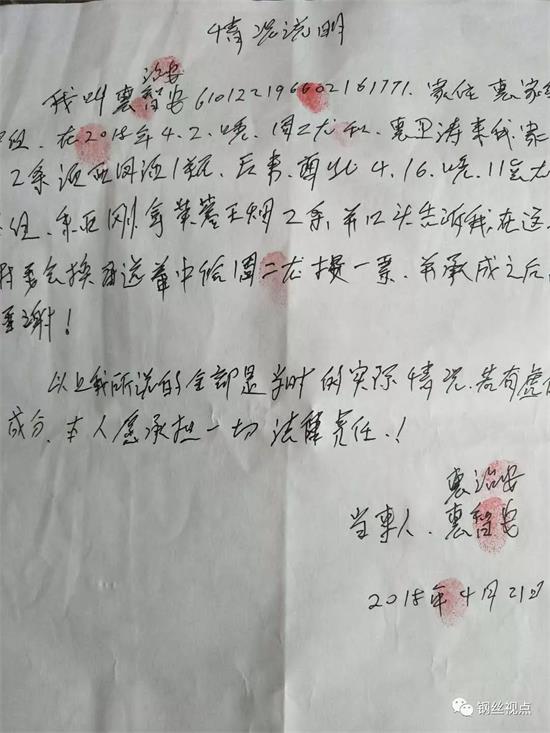 情况说明
治安
我叫惠智安610122196602161771.家住惠家
组.在2018年4.2.晚.周二龙和.惠卫涛来我家
2条酒西凤酒1瓶.后来.酉北4.16.晚.11点
组.朱亚刚拿黄芙王烟2条.并口头告诉我在这
村委会换届选举中给周二龙投一票.并承成之后
重谢!
以上我所说的全部是当时的实际情况.若有虚
成分.本人愿承担一切法律责任.!
惠治安
当事人.惠智安
2018年4月21日
钢丝视点